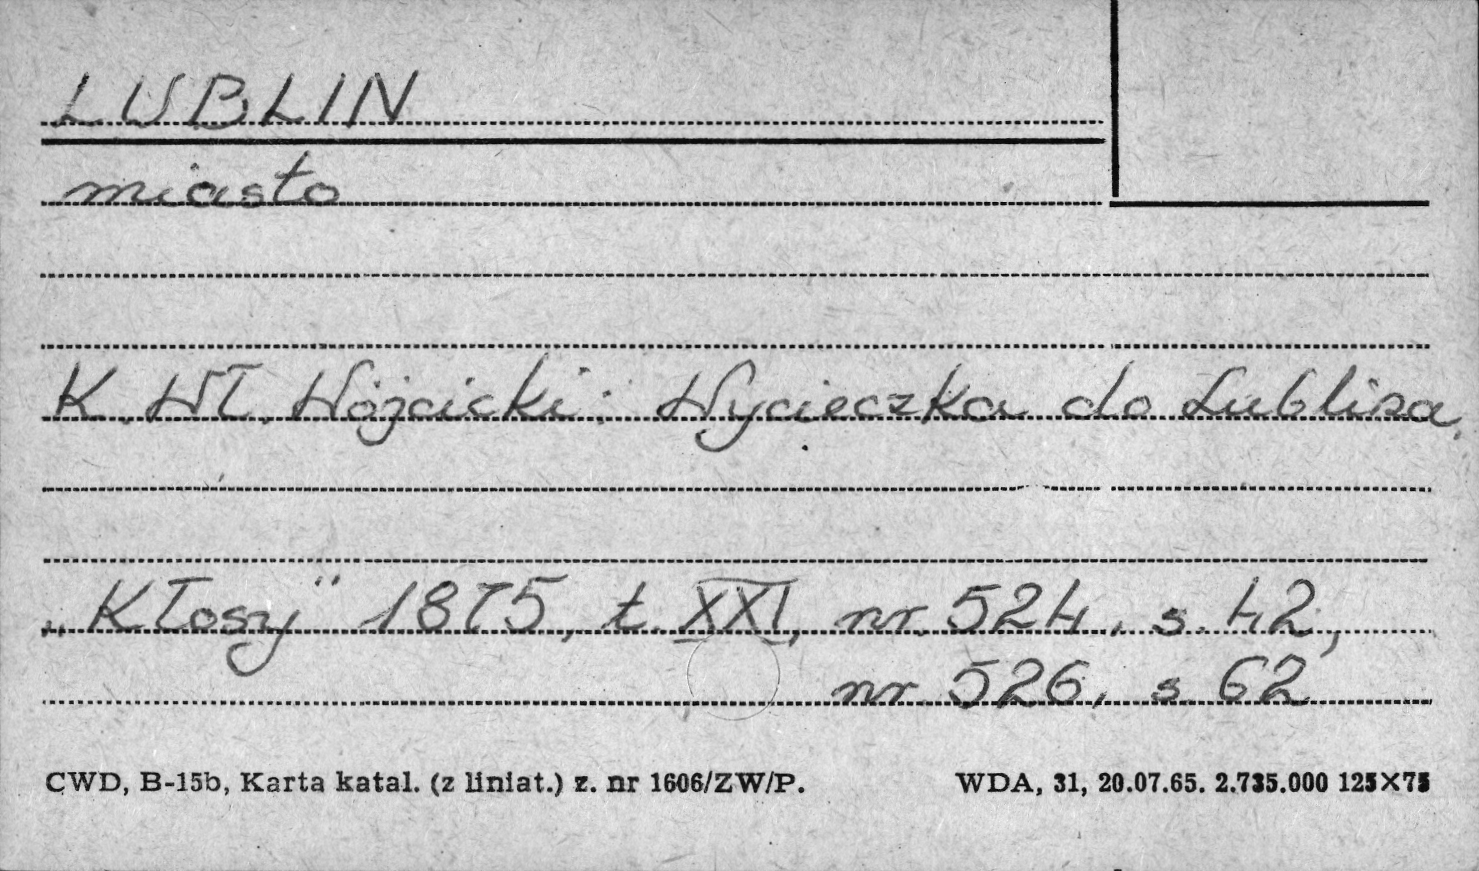 LUBLIN
miasto
K. Wł. Wójcicki: Wycieczka do Lublina.
„Kłosy" 1875, t. XXI, nr. 524, s. 42,
nr 526, s. 62
CWD, B-15b, Karta katal. (z liniat.) z. nr 1606/ZW/P.
WDA, 31, 20.07.65. 2.735.000 125×75